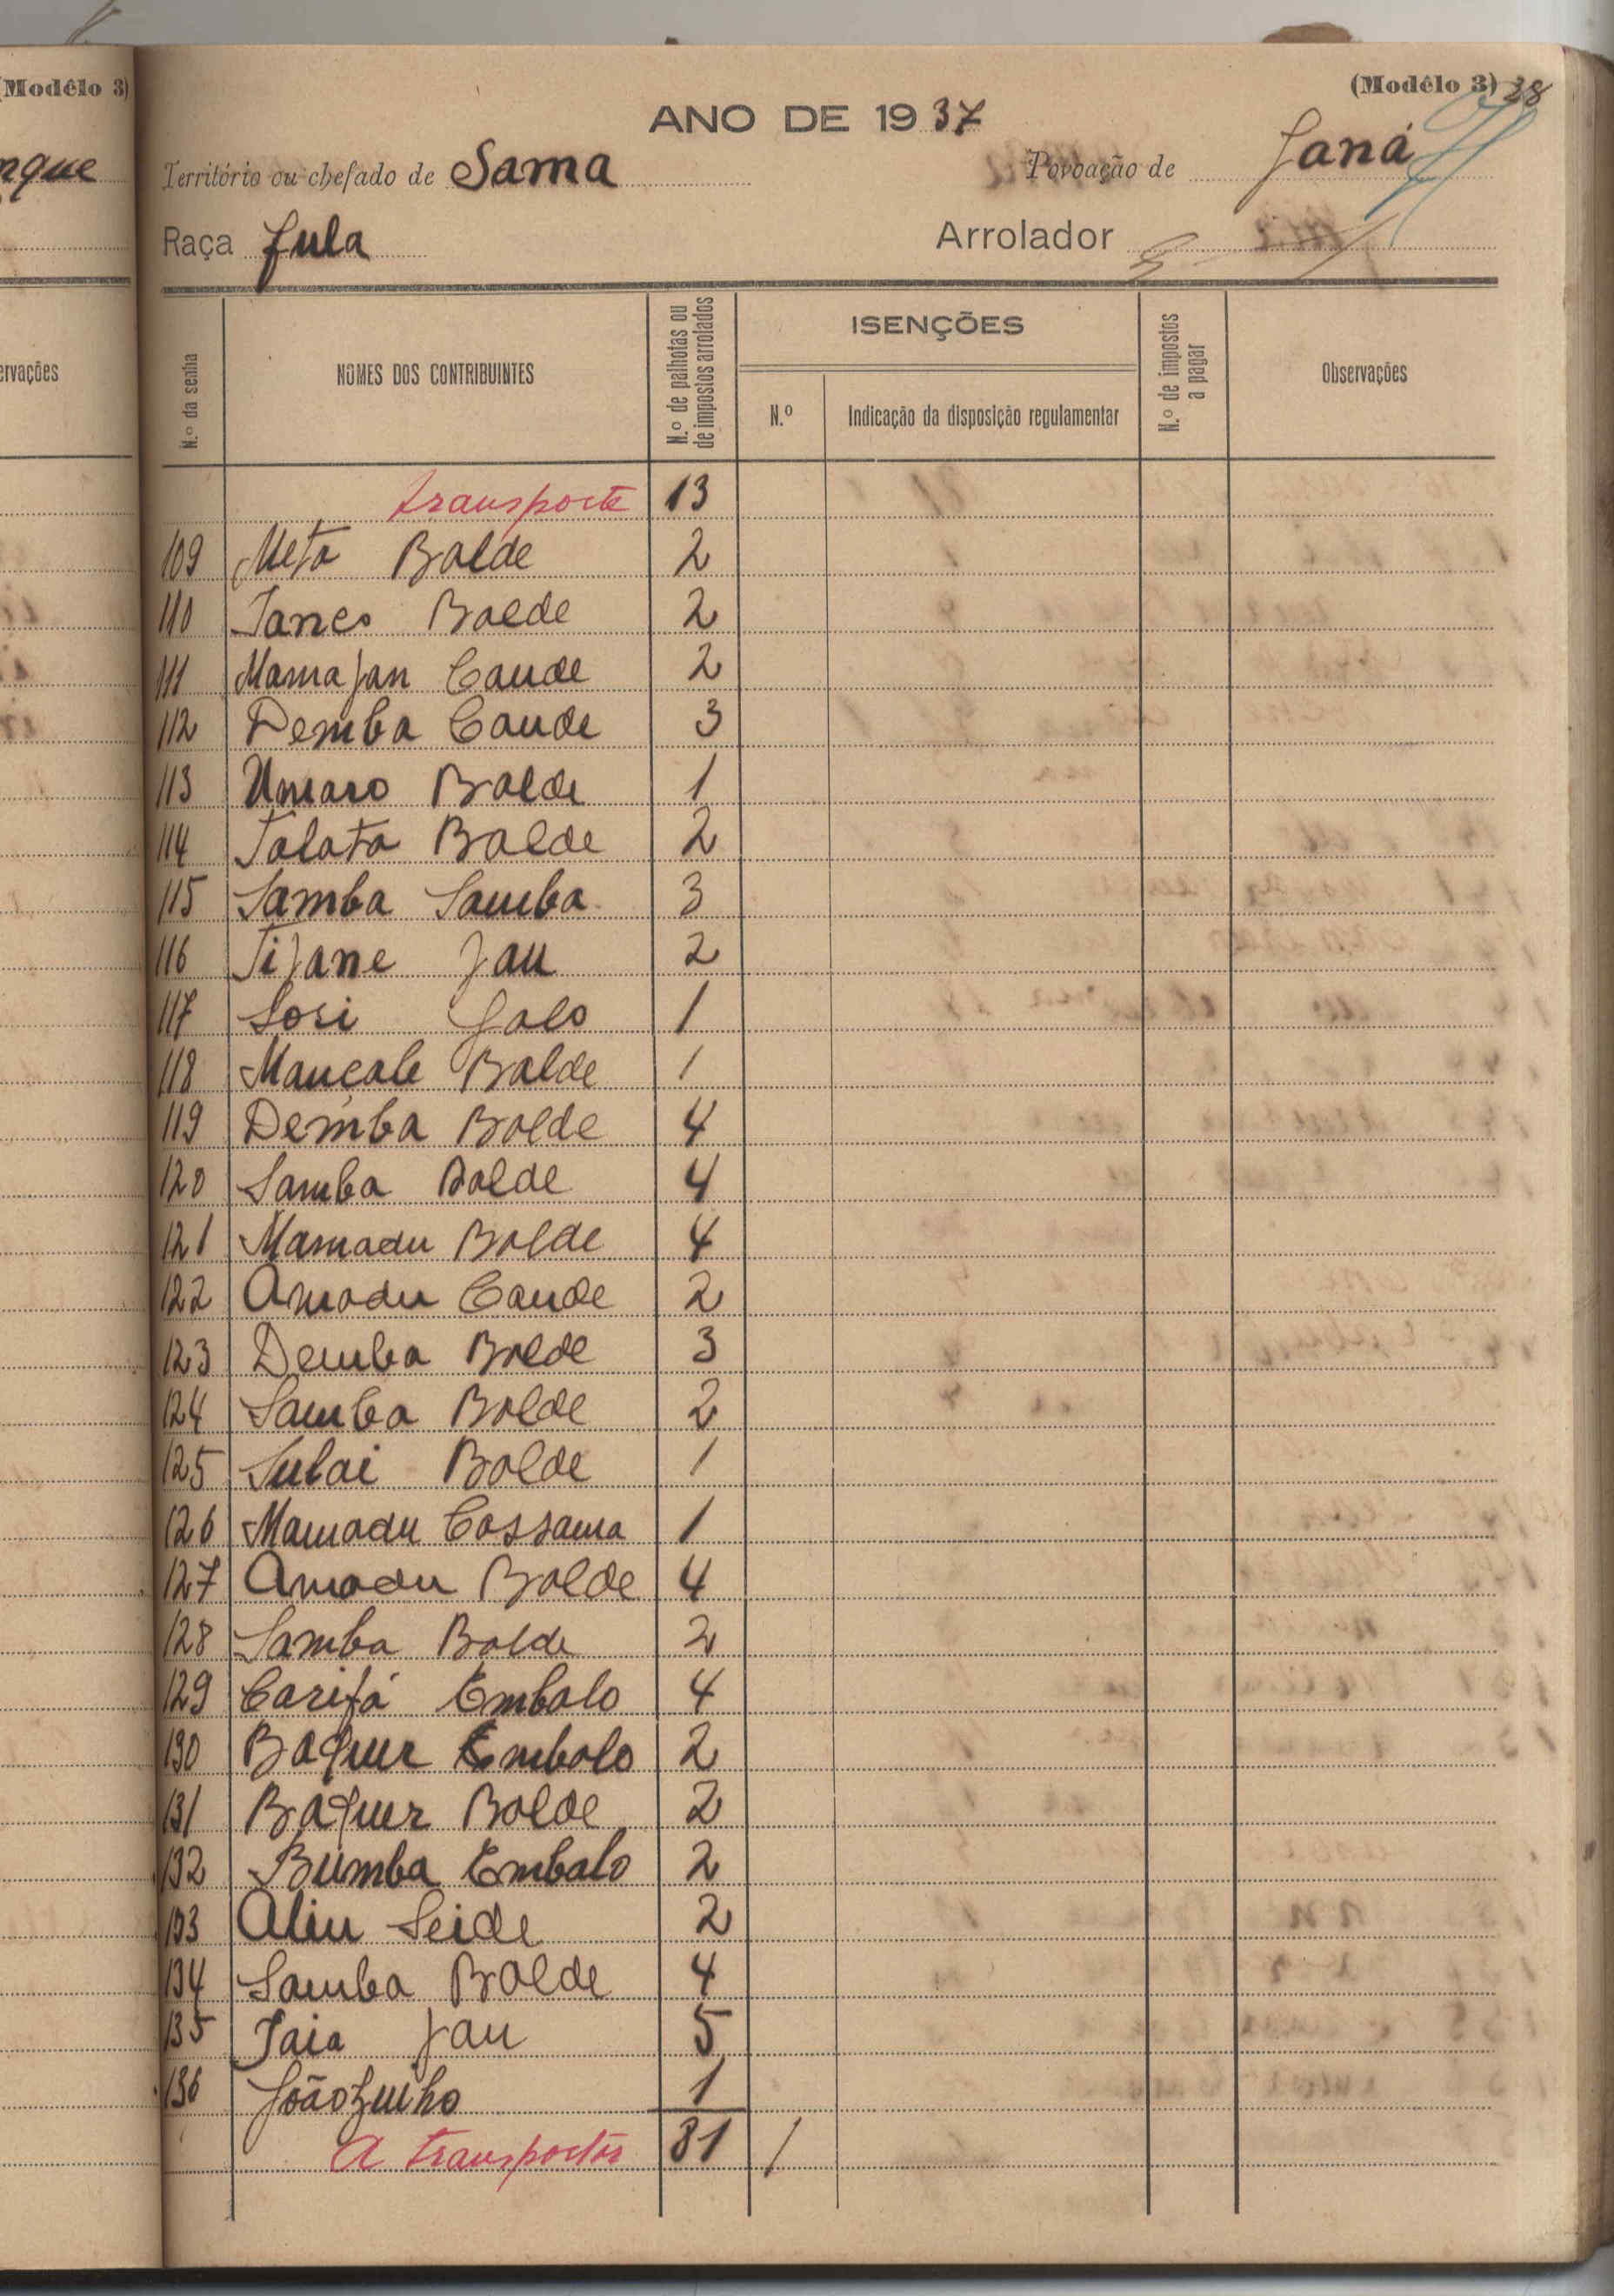 (Modêlo 3)
nque
ervações
(Modêlo 3) 38
ANO DE 1937
Território ou chefado de Sama Povoação de Janá
Raça fula Arrolador
N.º da senha NOMES DOS CONTRIBUINTES N.º de palhotas ou de impostos arrolados ISENÇÕES N.º Indicação da disposição regulamentar N.º de impostos a pagar Observações
transporte 13
109 Meta Balde 2
110 Sanco Balde 2
111 Mamajan Cande 2
112 Demba Cande 3
113 Umaro Balde 1
114 Talata Balde 2
115 Samba Samba 3
116 Tijane Jau 2
117 Sori Jalo 1
118 Mançale Balde 1
119 Demba Balde 4
120 Samba Balde 4
121 Mamadu Balde 4
122 Amadu Cande 2
123 Demba Balde 3
124 Samba Balde 2
125 Sulai Balde 1
126 Mamadu Cassama 1
127 Amadu Balde 4
128 Samba Balde 2
129 Carifá Embalo 4
130 Baquer Embalo 2
131 Baquer Balde 2
132 Bumba Embalo 2
133 Aliu Seide 2
134 Samba Balde 4
135 Iaia Jau 5
136 Joãozinho 1
A transportar 81